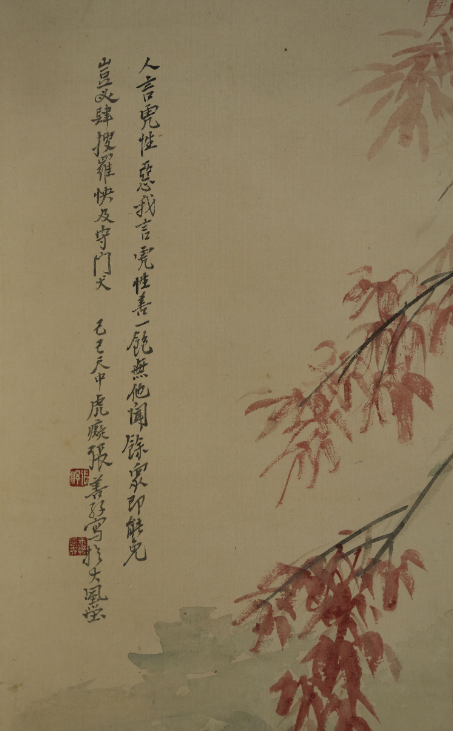 人言虎性惡我言虎性善一飽無他聞餘衆即能免
豈必肆搜羅快及守門犬 己巳天中虎癡張善孖寫於大風堂